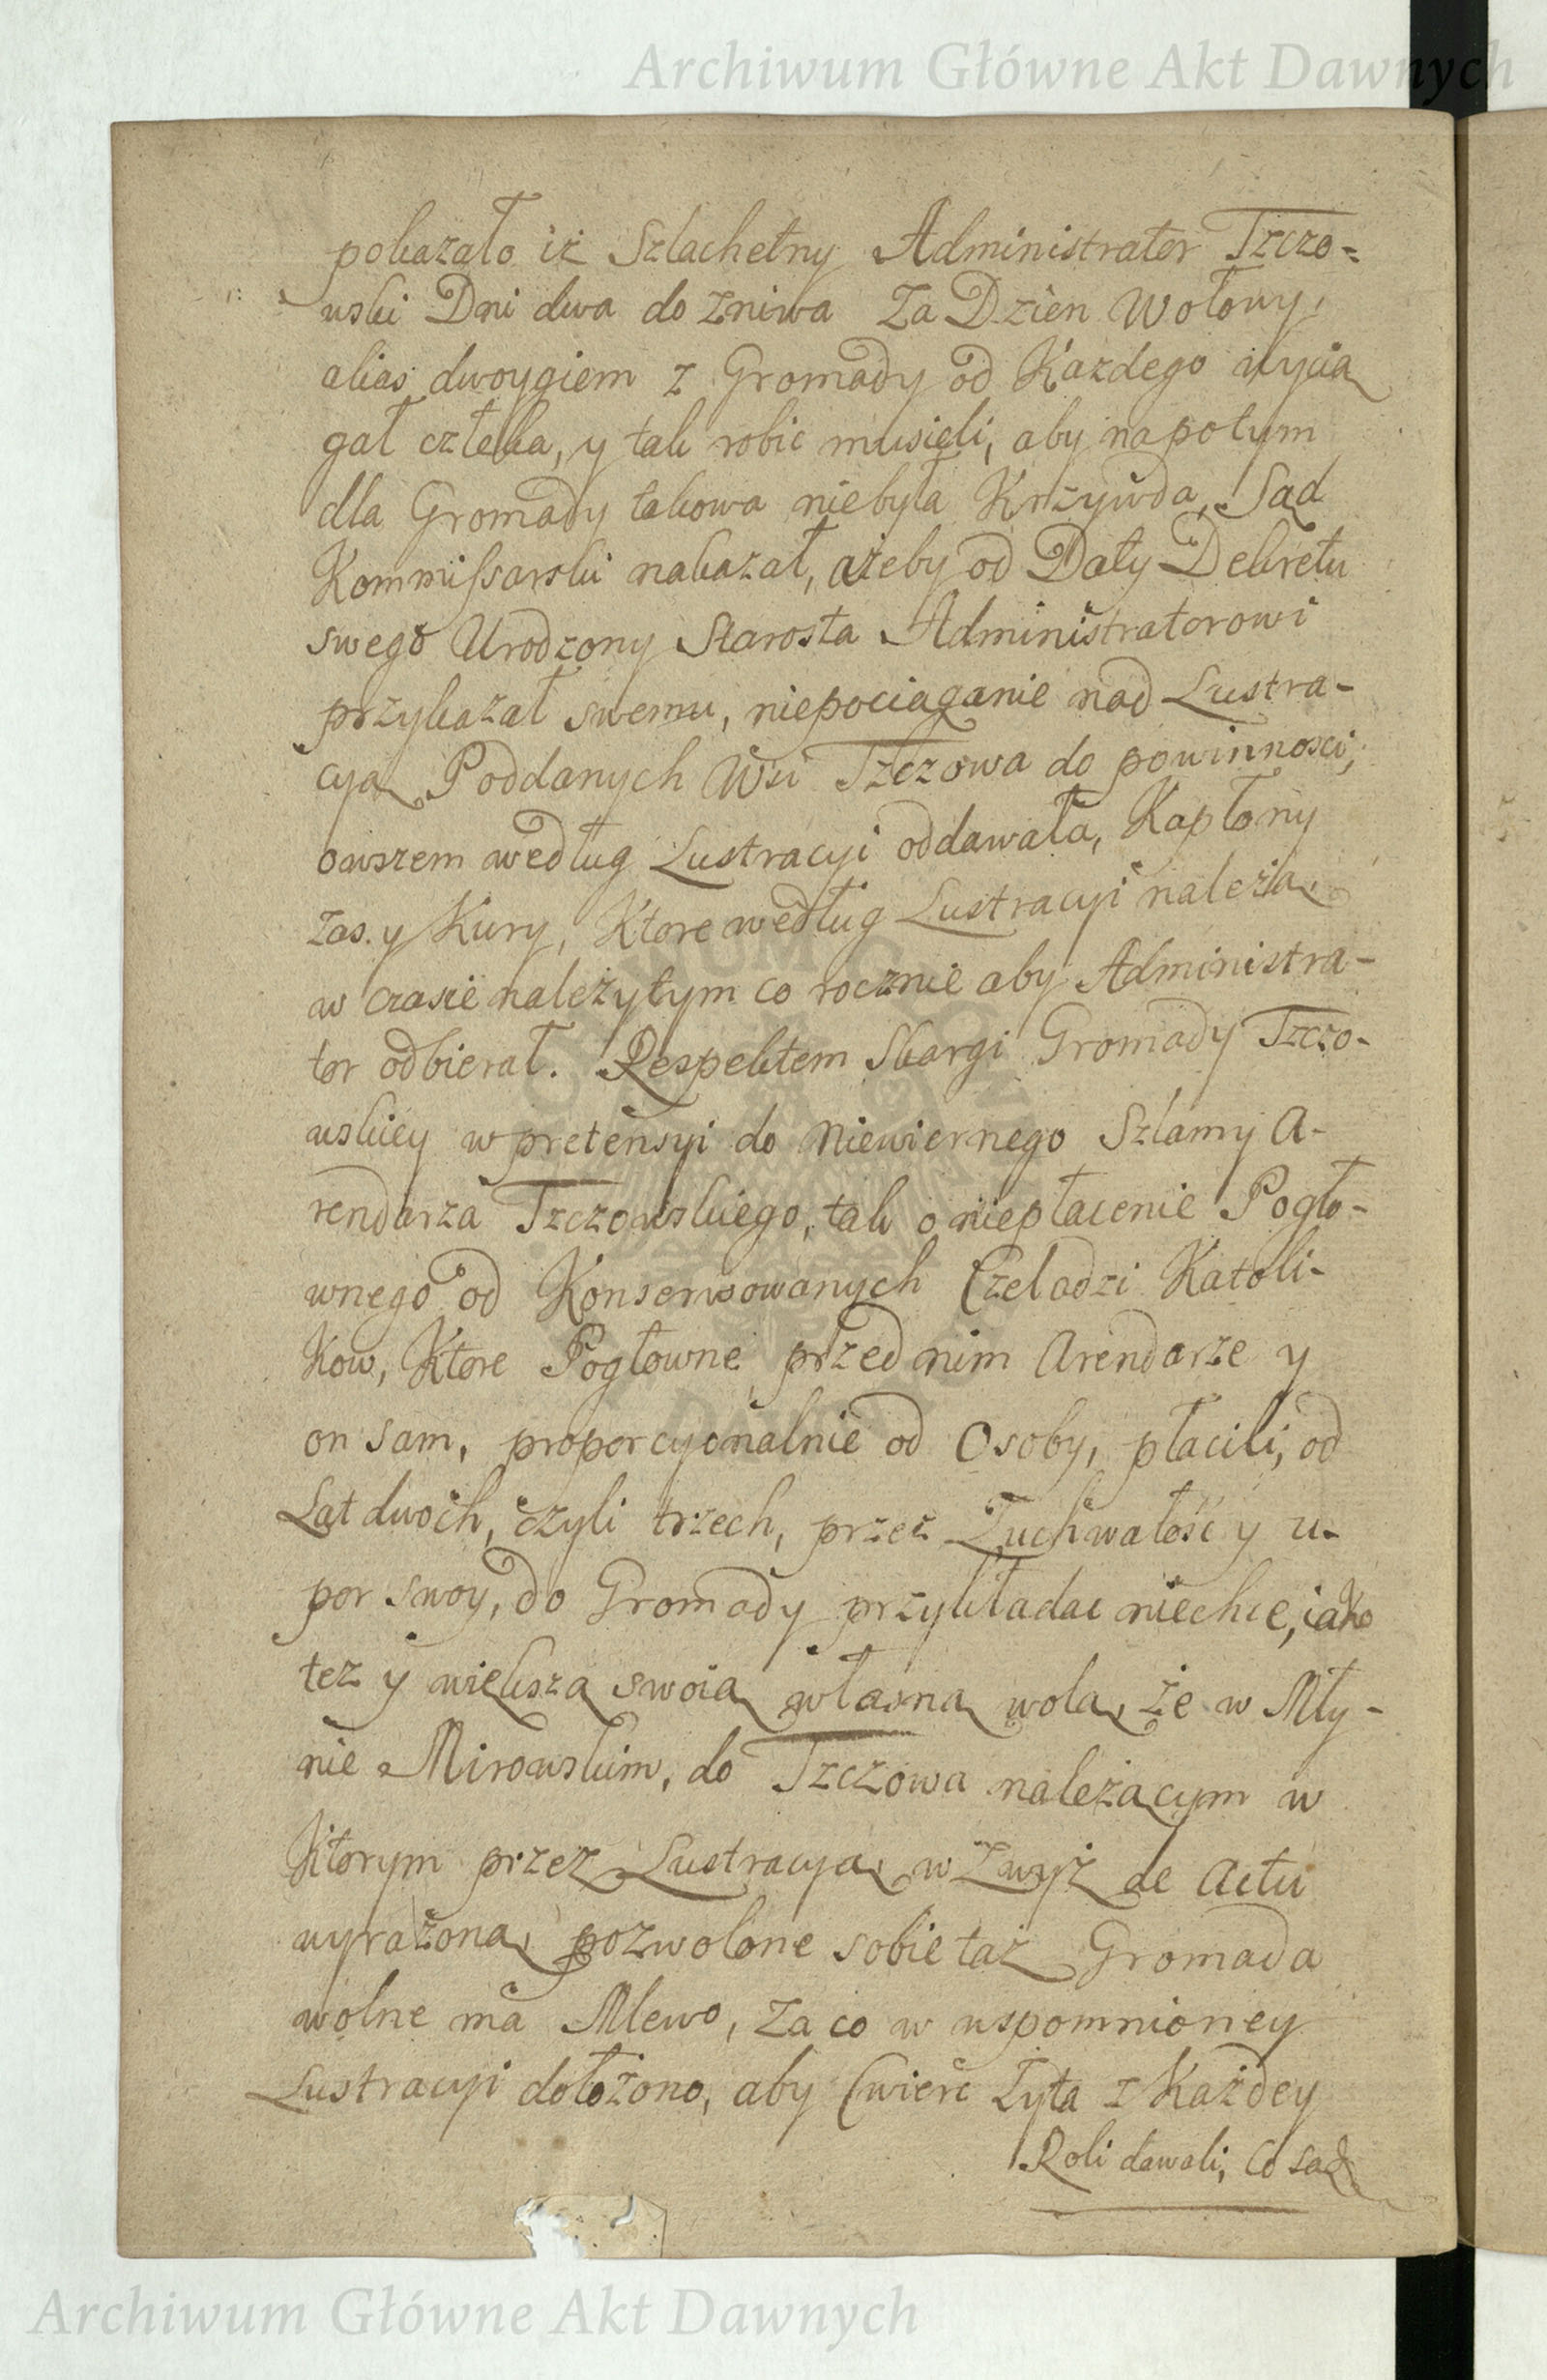 Archiwum Główne Akt Dawnych
pokazało iż Szlachetny Administrator Tzczo=
wski Dni dwa do Zniwa Za Dzien Wołowy,
alias dwoygiem z Gromady od Kazdego wycią
gał człeka, y tak robic musieli, aby napotym
dla Gromady takowa niebyła Krzywda, Sąd
Kommissarski nakazał, ażeby od Daty Dekretu
swego Urodzony Starosta Administratorowi
przykazał swemu, niepociąganie nad Lustra-
cyą Poddanych Wsi Tzczowa do powinnosci,
owszem według Lustracyi oddawała, Kapłony
zas. y Kury, Ktore według Lustracyi należą,
w czasie należytym co rocznie aby Administra-
tor odbierał. Respektem Skargi Gromady Tzczo-
wskiey w pretensyi do Niewiernego Szlamy A-
rendarza Tzczowskiego, tak o niepłacenie Pogło-
wnego od Konsensowanych Czeladzi Katoli-
Kow, Ktore Pogłowne przed nim Arendarze y
on sam, proporcyonalnie od Osoby, płacili, od
Lat dwoch, czyli trzech, przez Zuchwałość y u-
por swoy, do Gromady przykładac niechce, iako
tez y większą swoią własną wolą, że w Mły-
nie Mirowskim, do Tzczowa należącym w
Ktorym przez Lustracyą, w Zwyż de Actu
wyrażoną, pozwolone sobie taż Gromada
wolne ma Mlewo, Za co w wspomnioney
Lustracyi dołożono, aby Cwierć Żyta z Każdey
Roli dawali, Co sąd
Archiwum Główne Akt Dawnych